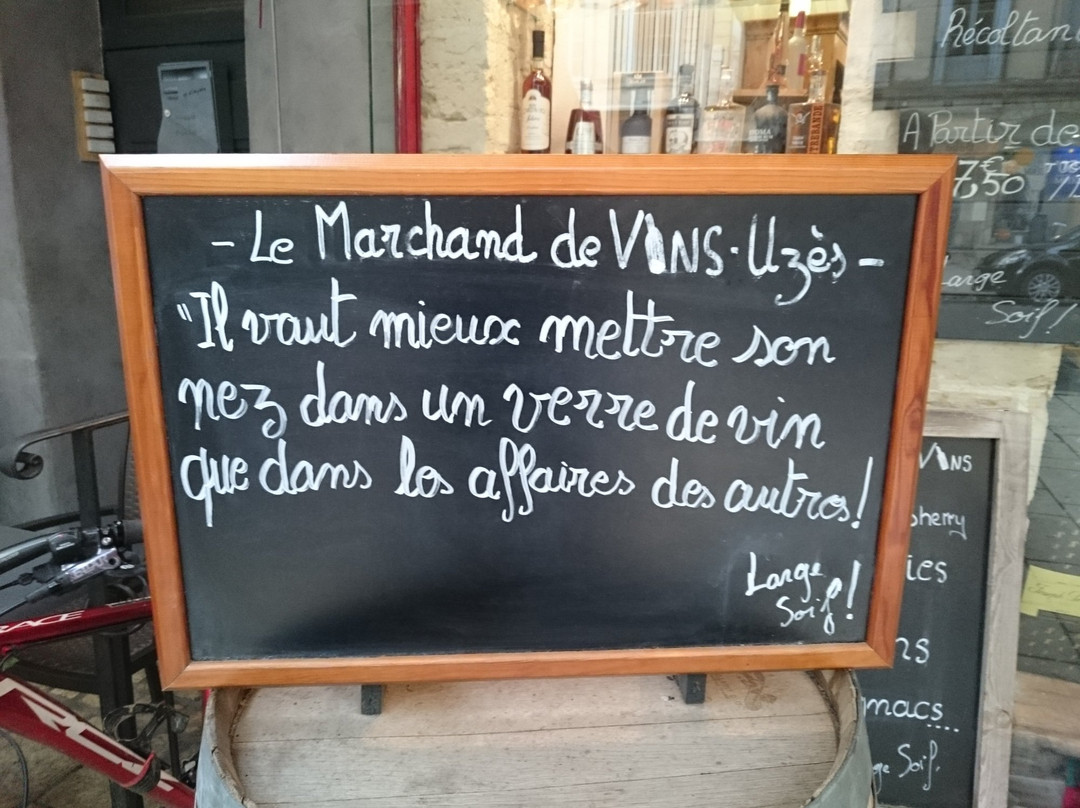 - Le Marchand de VINS · Uzès -
"Il vaut mieux mettre son
nez dans un verre de vin
que dans les affaires des autres!
Large
Soif!
Récoltan
A Partir de
7€50
Large
Soif!
VINS
sherry
ies
ns
macs
ge Soif.
RACE